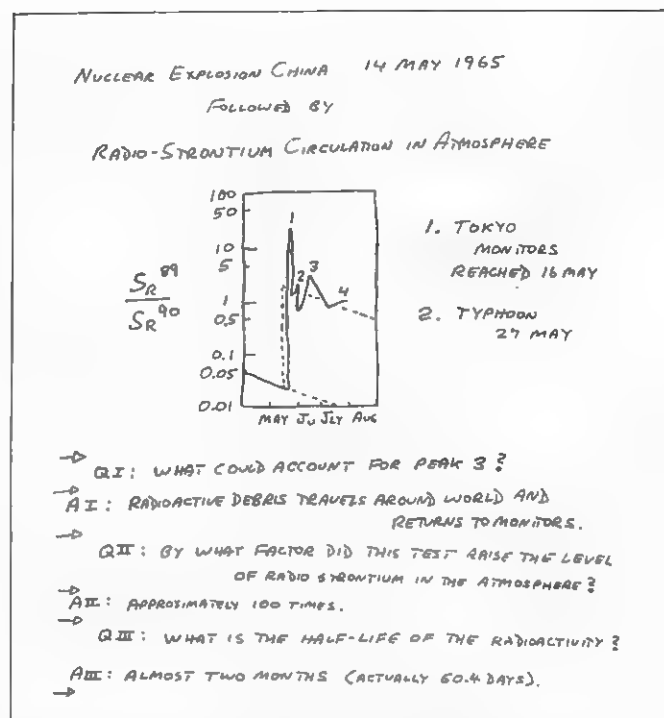 NUCLEAR EXPLOSION CHINA 14 MAY 1965
FOLLOWED BY
RADIO-STRONTIUM CIRCULATION IN ATMOSPHERE
SR 89
SR 90
100
50
10
5
1
0.5
0.1
0.05
0.01
1
2
3
4
MAY JU JLY AUG
1. TOKYO
MONITORS
REACHED 16 MAY
2. TYPHOON
27 MAY
→ QI: WHAT COULD ACCOUNT FOR PEAK 3?
→ AI: RADIOACTIVE DEBRIS TRAVELS AROUND WORLD AND
RETURNS TO MONITORS.
→ QII: BY WHAT FACTOR DID THIS TEST RAISE THE LEVEL
OF RADIO STRONTIUM IN THE ATMOSPHERE?
→ AII: APPROXIMATELY 100 TIMES.
→ QIII: WHAT IS THE HALF-LIFE OF THE RADIOACTIVITY?
AIII: ALMOST TWO MONTHS (ACTUALLY 60.4 DAYS).
→